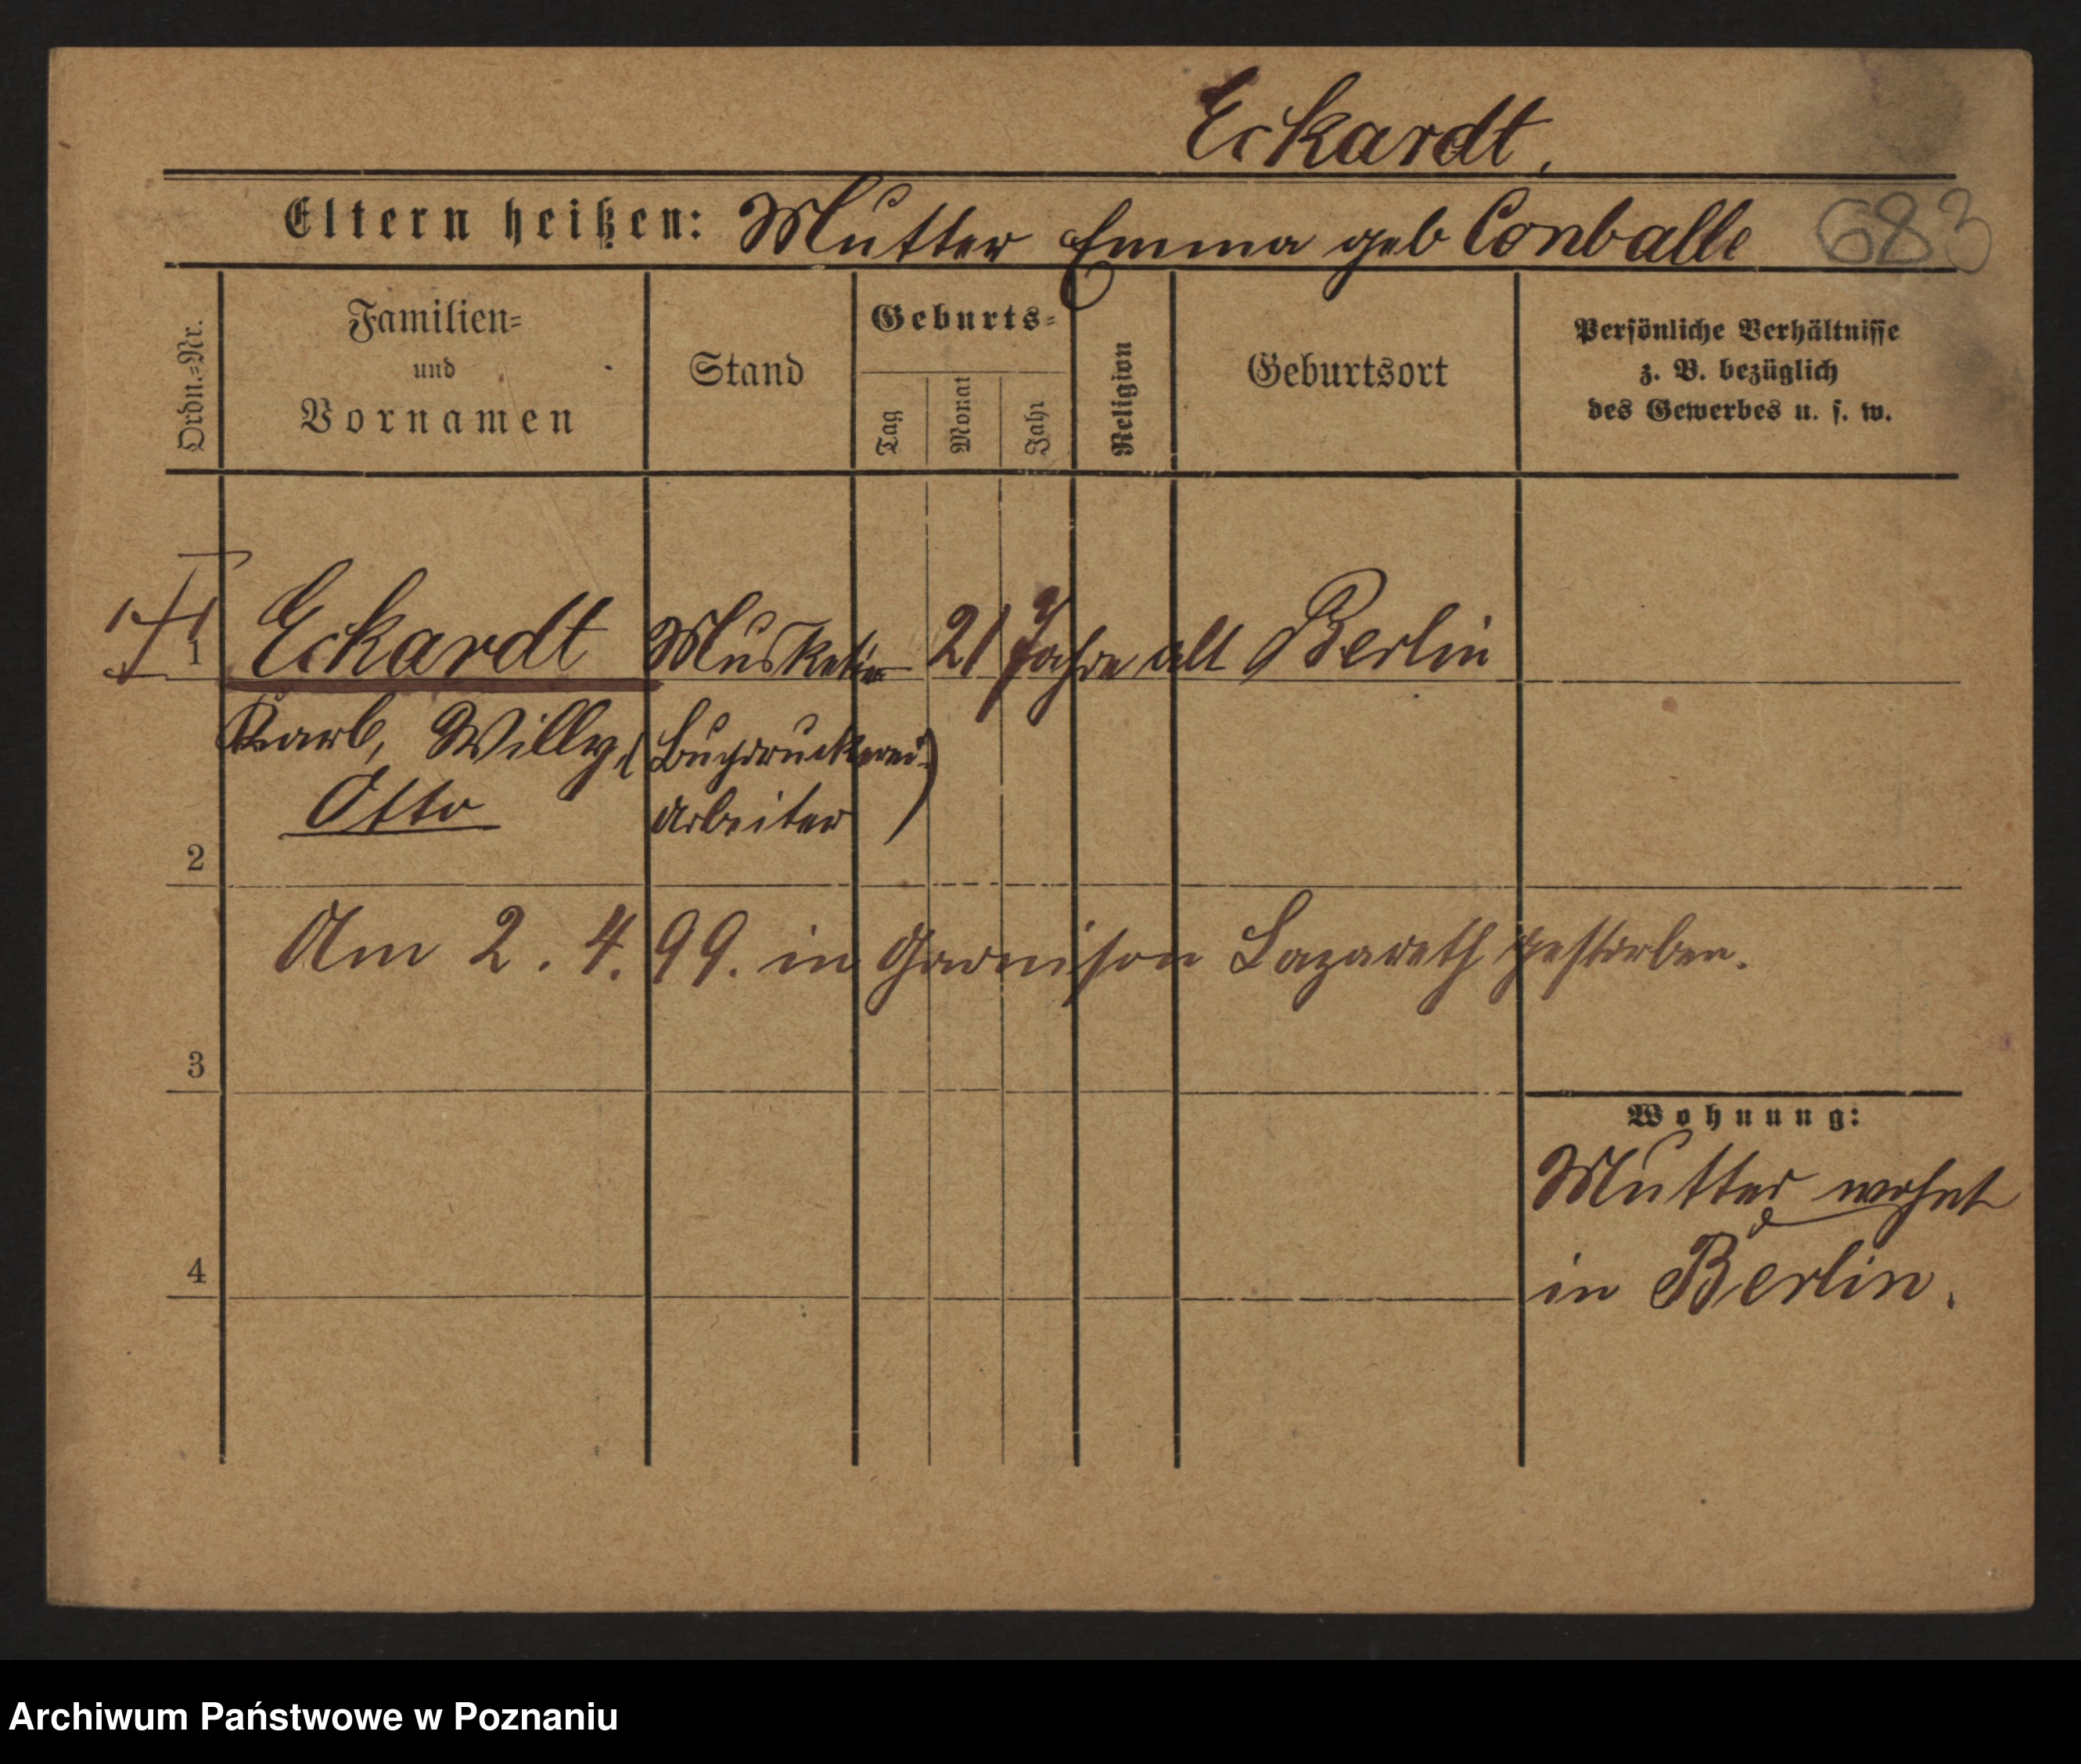 Eckardt.
Eltern heißen: Mutter Emma geb Conballe
683
Ordn.=Nr.
Familien=
und
Vornamen
Stand
Geburts=
Tag
Monat
Jahr
Religion
Geburtsort
Persönliche Verhältnisse
z. B. bezüglich
des Gewerbes u. s. w.
1 Eckardt Musketier 21 Jahre alt Berlin
Willy, (Buchdruckerei=
Otto Arbeiter)
2
Am 2. 4. 99. in Garnison Lazareth gestorben.
3
Wohnung:
Mutter wohnt
4
in Berlin.
Archiwum Państwowe w Poznaniu